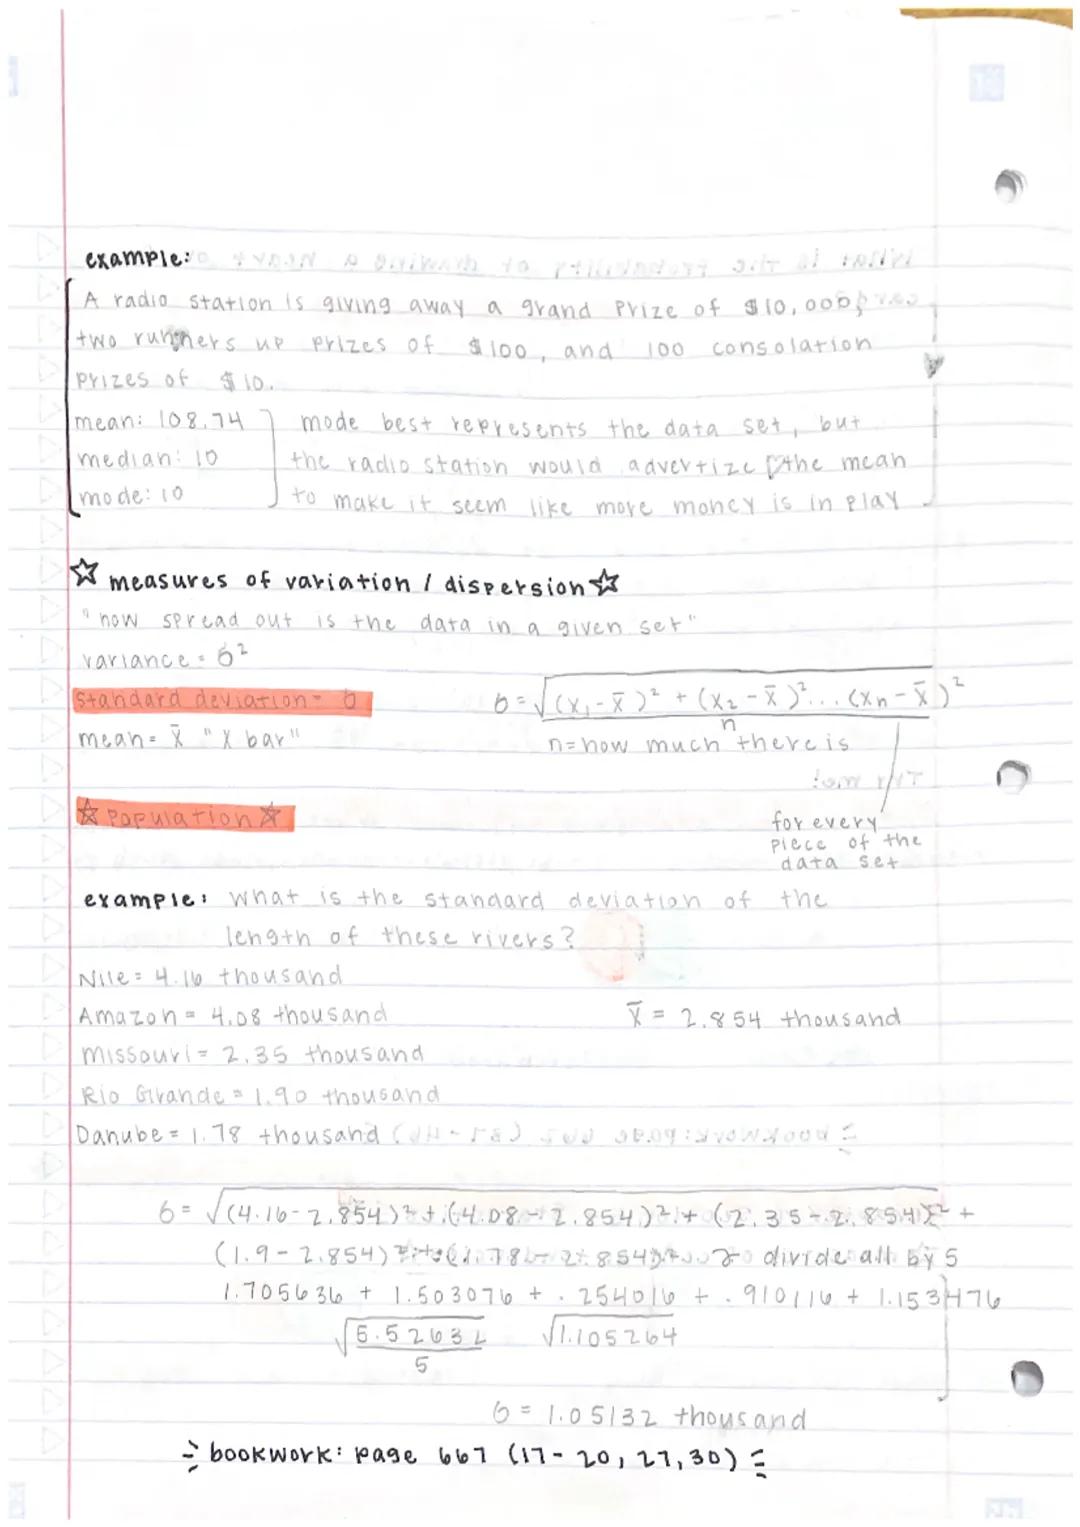 example:
A radio station is giving away a grand prize of $10,000,
two runners up prizes of $100, and 100 consolation
prizes of $10.
mean: 108.74 mode best represents the data set, but
median: 10 the radio station would advertize the mean
mode: 10 to make it seem like more money is in play
☆ measures of variation / dispersion ☆
"how spread out is the data in a given set"
variance = σ²
standard deviation = σ σ = √(x₁-x̄)² + (x₂-x̄)²... (xn-x̄)²
n
mean = x̄ "x bar" n = how much there is
☆ Population ☆
for every
piece of the
data set
example: what is the standard deviation of the
length of these rivers?
Nile = 4.16 thousand
Amazon = 4.08 thousand x̄ = 2.854 thousand
missouri = 2.35 thousand
Rio Grande = 1.90 thousand
Danube = 1.78 thousand
σ = √(4.16-2.854)² + (4.08-2.854)² + (2.35-2.854)² +
(1.9-2.854)² + (1.78-2.854)² divide all by 5
1.705636 + 1.503076 + .254016 + .910116 + 1.153476
√5.52632 √1.105264
5
σ = 1.05132 thousand
bookwork: page 667 (17-20, 27, 30)